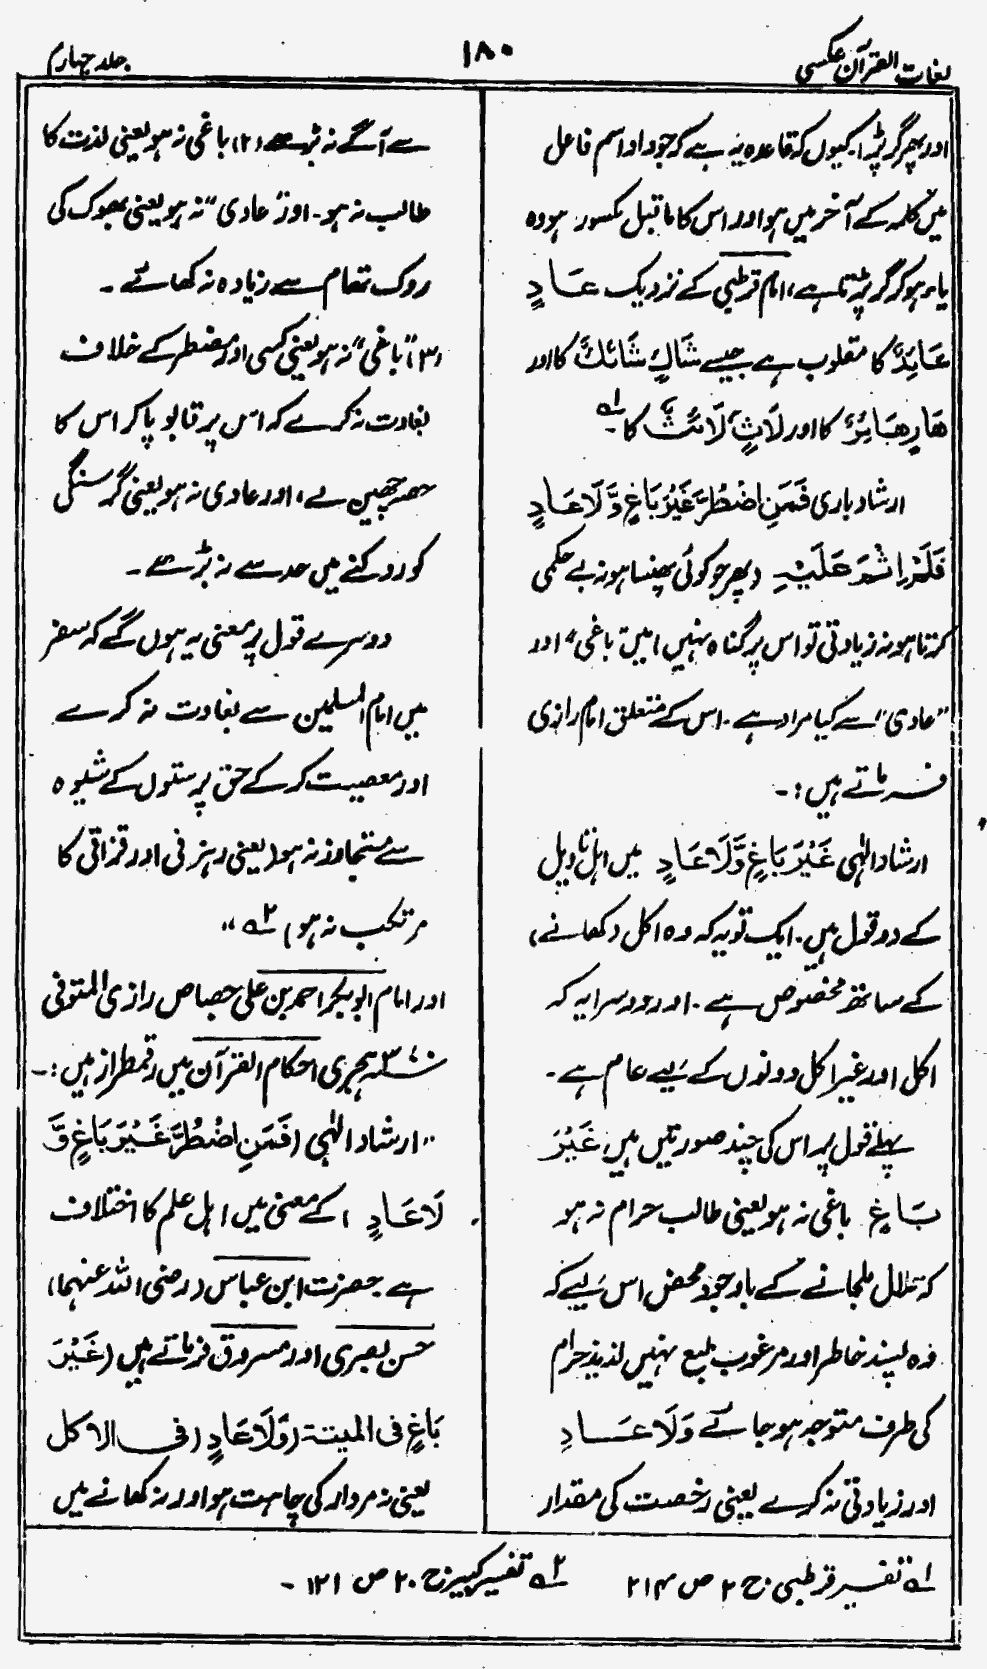 لغات القرآن عکسی
۱۸۰
جلد چہارم
اور پھر گر پڑا کیوں کہ قاعدہ یہ ہے کہ جو واو اسم فاعل
میں کلمہ کے آخر میں ہو اور اس کا ماقبل مکسور ہو وہ
یاء ہو کر گر پڑتا ہے، امام قرطبی کے نزدیک عَادٍ
عَائِدٌ کا مقلوب ہے جیسے شَاكٍ شَائكٌ کا اور
هَارٍ هَائِرٌ کا اور لَاثٍ لَائثٌ کا۔ ؎۱
ارشاد باری فَمَنِ اضْطُرَّ غَيْرَ بَاغٍ وَّلَا عَادٍ
فَلَآ اِثْمَ عَلَيْهِ (پھر جو کوئی پھنسا ہو نہ بے حکمی
کرتا ہو نہ زیادتی تو اس پر گناہ نہیں) میں "باغی" اور
"عادی" سے کیا مراد ہے۔ اس کے متعلق امام رازی
فرماتے ہیں:۔
ارشاد الٰہی غَيْرَ بَاغٍ وَّلَا عَادٍ میں اہل تاویل
کے دو قول ہیں۔ ایک تو یہ کہ وہ اکل (کھانے)
کے ساتھ مخصوص ہے۔ اور دوسرا یہ کہ
اکل اور غیر اکل دونوں کے لیے عام ہے۔
پہلے قول پر اس کی چند صورتیں ہیں غَيْرَ
بَاغٍ باغی نہ ہو یعنی طالب حرام نہ ہو
کہ حلال مل جانے کے باوجود محض اس لیے کہ
وہ پسند خاطر اور مرغوب طبع نہیں لذیذ حرام
کی طرف متوجہ ہو جائے وَلَا عَادٍ
اور زیادتی نہ کرے یعنی رخصت کی مقدار
سے آگے نہ بڑھے (۲) باغی نہ ہو یعنی لذت کا
طالب نہ ہو۔ اور "عادی" نہ ہو یعنی بھوک کی
روک تھام سے زیادہ نہ کھائے۔
(۳) "باغی" نہ ہو یعنی کسی اور مضطر کے خلاف
بغاوت نہ کرے کہ اس پر قابو پا کر اس کا
حصہ چھین لے، اور عادی نہ ہو یعنی گرسنگی
کو روکنے میں حد سے نہ بڑھے۔
دوسرے قول پر معنی یہ ہوں گے کہ سفر
میں امام المسلمین سے بغاوت نہ کرے
اور معصیت کر کے حق پرستوں کے شیوہ
سے متجاوز نہ ہو (یعنی رہزنی اور قزاقی کا
مرتکب نہ ہو) ؎۲ "
اور امام ابوبکر احمد بن علی جصاص رازی المتوفی
۳۷۰ ہجری احکام القرآن میں رقمطراز ہیں:۔
"ارشاد الٰہی (فَمَنِ اضْطُرَّ غَيْرَ بَاغٍ وَّ
لَا عَادٍ) کے معنی میں اہل علم کا اختلاف
ہے حضرت ابن عباس (رضی اللہ عنہما)
حسن بصری اور مسروق فرماتے ہیں (غَيْرَ
بَاغٍ فی المیتة (وَلَا عَادٍ) فی الاکل
یعنی نہ مردار کی چاہت ہو اور نہ کھانے میں
؎۱ تفسیر قرطبی ج ۲ ص ۲۱۴
؎۲ تفسیر کبیر ج ۲۰ ص ۱۲۱۔